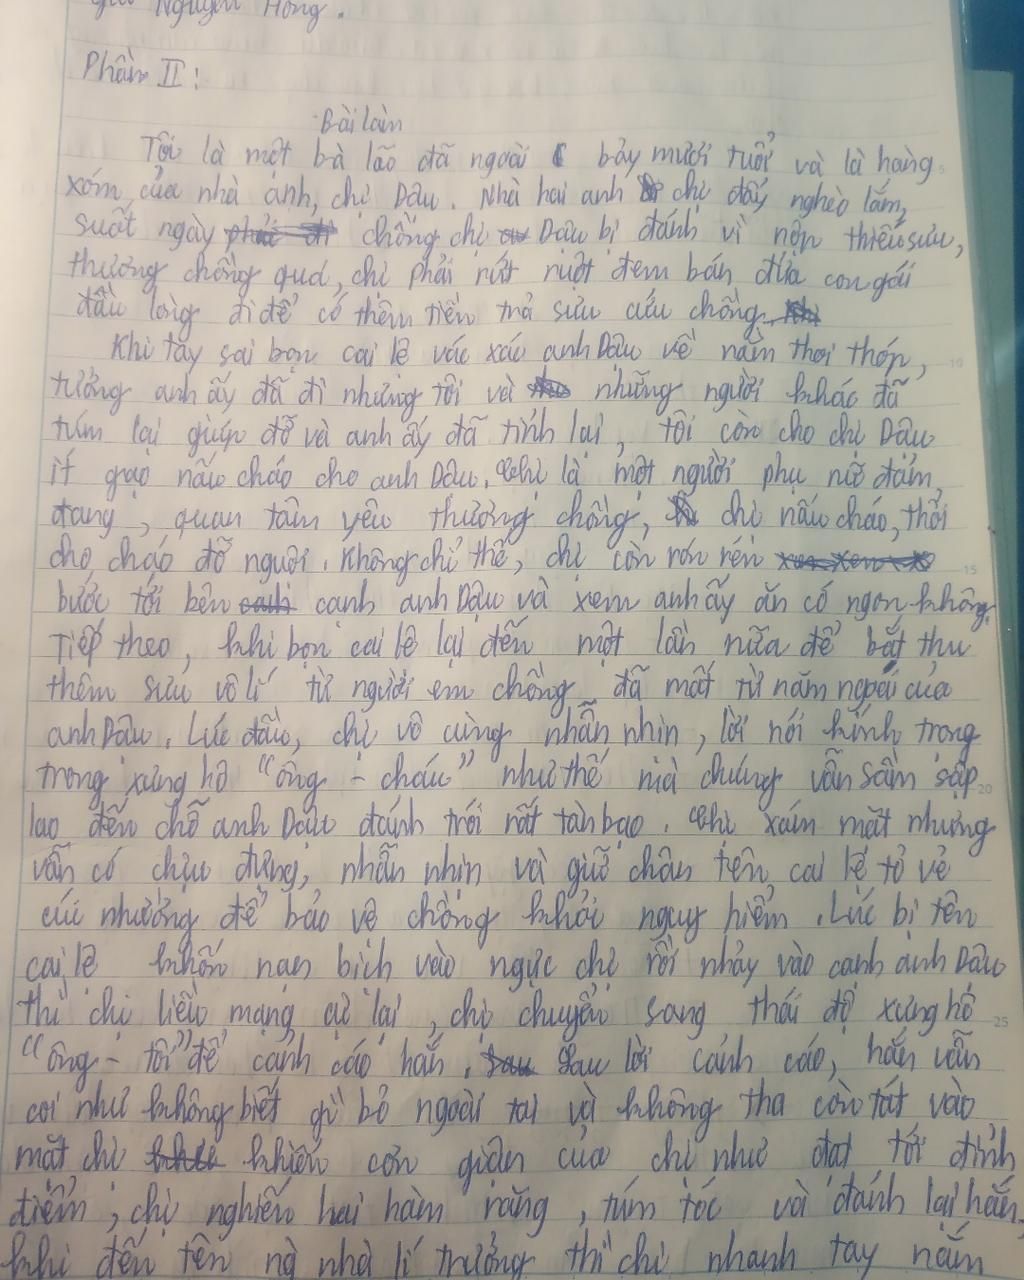 Nguyên Hồng.
Phần II:
Bài làm
Tôi là một bà lão đã ngoài bảy mươi tuổi và là hàng
xóm của nhà anh, chị Dậu. Nhà hai anh chị đấy nghèo lắm,
suốt ngày chồng chị Dậu bị đánh vì nộp thiếu sưu,
thương chồng quá, chị phải rứt ruột đem bán đứa con gái
đầu lòng đi để có thêm tiền trả sưu cứu chồng.
Khi tay sai bọn cai lệ vác xác anh Dậu về nằm thoi thóp,
tưởng anh ấy đã đi nhưng tôi và những người khác đã
túm lại giúp đỡ và anh ấy đã tỉnh lại, tôi còn cho chị Dậu
ít gạo nấu cháo cho anh Dậu. Chị là một người phụ nữ đảm
đang, quan tâm yêu thương chồng, chị nấu cháo, thổi
cho cháo đỡ nguội. Không chỉ thế, chị còn rón rén
bước tới bên cạnh anh Dậu và xem anh ấy ăn có ngon không.
Tiếp theo, khi bọn cai lệ lại đến một lần nữa để bắt thu
thêm sưu vô lí từ người em chồng đã mất từ năm ngoái của
anh Dậu. Lúc đầu, chị vô cùng nhẫn nhịn, lời nói kính trọng
trong xưng hô "ông - cháu" như thế mà chúng vẫn sầm sập
lao đến chỗ anh Dậu đánh trói rất tàn bạo. Chị xám mặt nhưng
vẫn cố chịu đựng, nhẫn nhịn và giữ chân tên cai lệ tỏ vẻ
cúi nhường để bảo vệ chồng khỏi nguy hiểm. Lúc bị tên
cai lệ khốn nạn bịch vào ngực chị rồi nhảy vào cạnh anh Dậu
thì chị liều mạng cự lại, chị chuyển sang thái độ xưng hô
"ông - tôi" để cảnh cáo hắn. Sau lời cảnh cáo, hắn vẫn
coi như không biết gì bỏ ngoài tai và không tha còn tát vào
mặt chị khiến cơn giận của chị như đạt tới đỉnh
điểm, chị nghiến hai hàm răng, túm tóc và đánh lại hắn,
khi đến tên nhà lí trưởng thì chị nhanh tay nắm